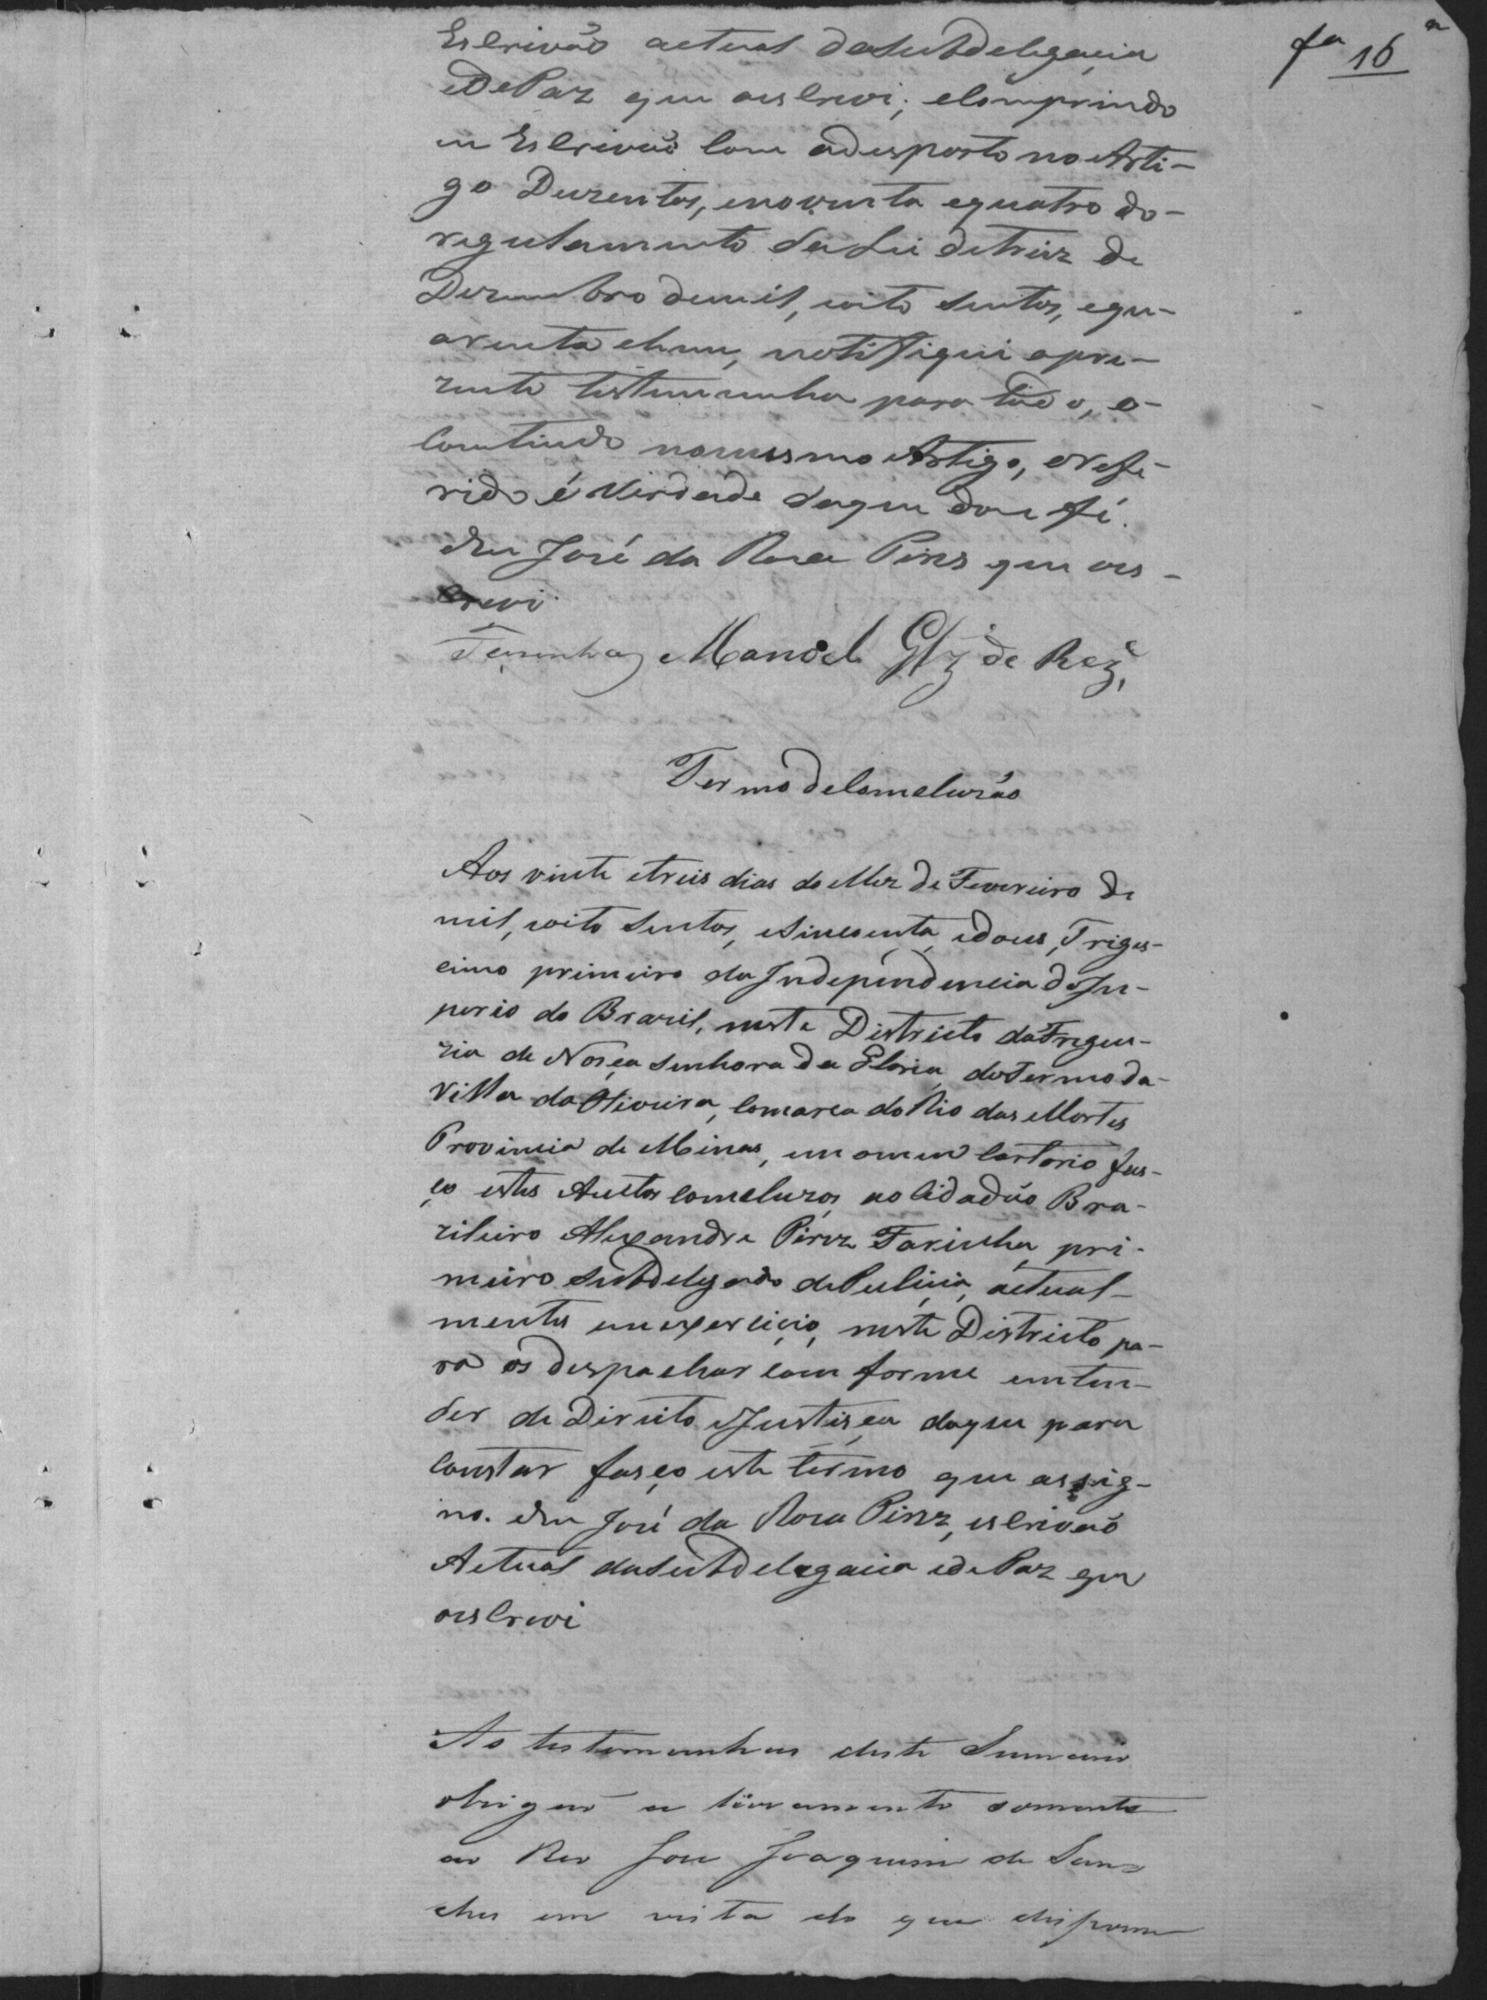 fa 16
Escrivão actual dasubdelegacia
edePaz que oescrevi; eComprindo
eu Escrivão Com odisposto no Arti-
go Duzentos, enoventa equatro do-
regulamento da Lei detreiz de
Dezembro demil, oito Sentos, equ-
arenta ehum, notifiquei apre-
zente testemunha para tudo, o-
Comtiudo nomesmo Artigo, orefe-
rido é Verdade daque dou fé.
Eu José da Roza Pires que oes-
crevi.
Farinha Manoel Glz de Rezé.
Termo deComcluzão
Aos vinte etreis dias do Mez de Fevereiro de
mil, oito Sentos, esincoenta, edous, Triges-
cimo primeiro da Independencia do Im-
perio do Brazil, neste Districto da Fregue-
zia de Noşça Senhora da Gloria, doTermo da-
Villa da Oliveira, Comarca do Rio das Mortes
Provincia de Minas, em omeu Cartorio fas-
ço estes Auctos Comcluzos, ao Cidadão Bra-
zileiro Alexandre Pirez Farinha, pri-
meiro Subdelegado de Pulicia, actual-
mentes emexerciçio, neste Districto pa-
ra os despachar Com forme emten-
der de Direito eJustisça daque para
Constar fasço este termo que assig-
no. Eu José da Roza Pirez, esCrivaõ
Actual dasubdelegacia edePaz que
oesCrevi
As testemunhas deste Sumario
obrigaõ a livramento somente
ao Reo Jose Joaquim de San-
ches em vista do que dispoem